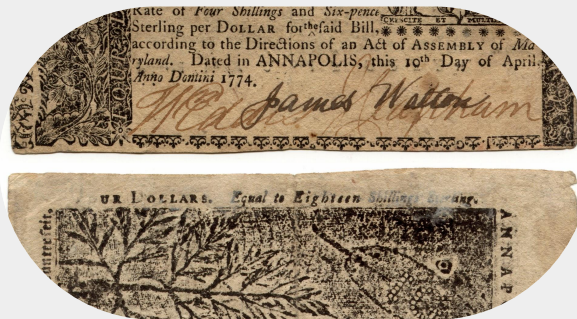 Rate of Four Shillings and Six-pence
Sterling per DOLLAR for the said Bill,
CRESCITE ET MULT
according to the Directions of an Act of ASSEMBLY of Ma
ryland. Dated in ANNAPOLIS, this 10th Day of April
Anno Domini 1774.
James Walton
UR DOLLARS. Equal to Eighteen Shillings
ANNAP